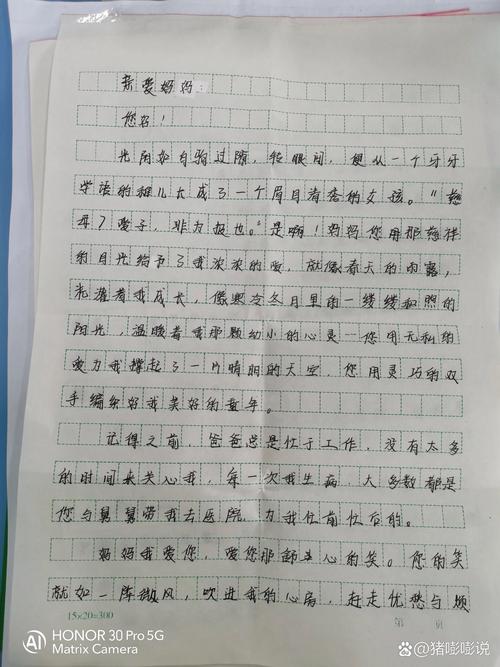 亲爱妈妈：
您好！
光阴如白驹过隙，轻眼间，便从一个牙牙
学语的稚儿长成了一个眉目清秀的女孩。“慈
母之爱子，非为报也。”是啊！妈妈您用那慈祥
的目光给予了我浓浓的爱，就像春天的雨露，
滋潤着我成长，像寒冷冬月里的一缕缕和煦的
阳光，温暖着我那颗幼小的心灵—您用无私的
爱为我撑起了一片晴朗的天空，您用灵巧的双
手编织好我美好的童年。
记得之前，爸爸总是忙于工作，没有太多
的时间来关心我，每一次我生病，大多数都是
您与舅舅带我去医院，为我忙前忙后的。
妈妈我爱您，爱您那颗关心的笑。您的笑
就如一阵微风，吹进我的心房，赶走忧愁与烦
15×20=300
第 页
HONOR 30 Pro 5G
Matrix Camera
@猪嘭嘭说